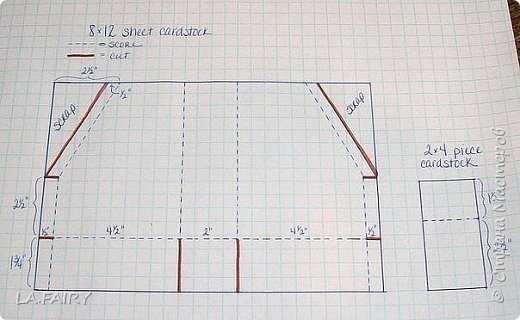 8×12 sheet cardstock
= score
= cut
2½"
½"
scrap
scrap
2 × 4 piece
cardstock
2½"
½"
4½"
2"
4½"
½"
1¾"
LA.FAIRY
© Страна Мастеров